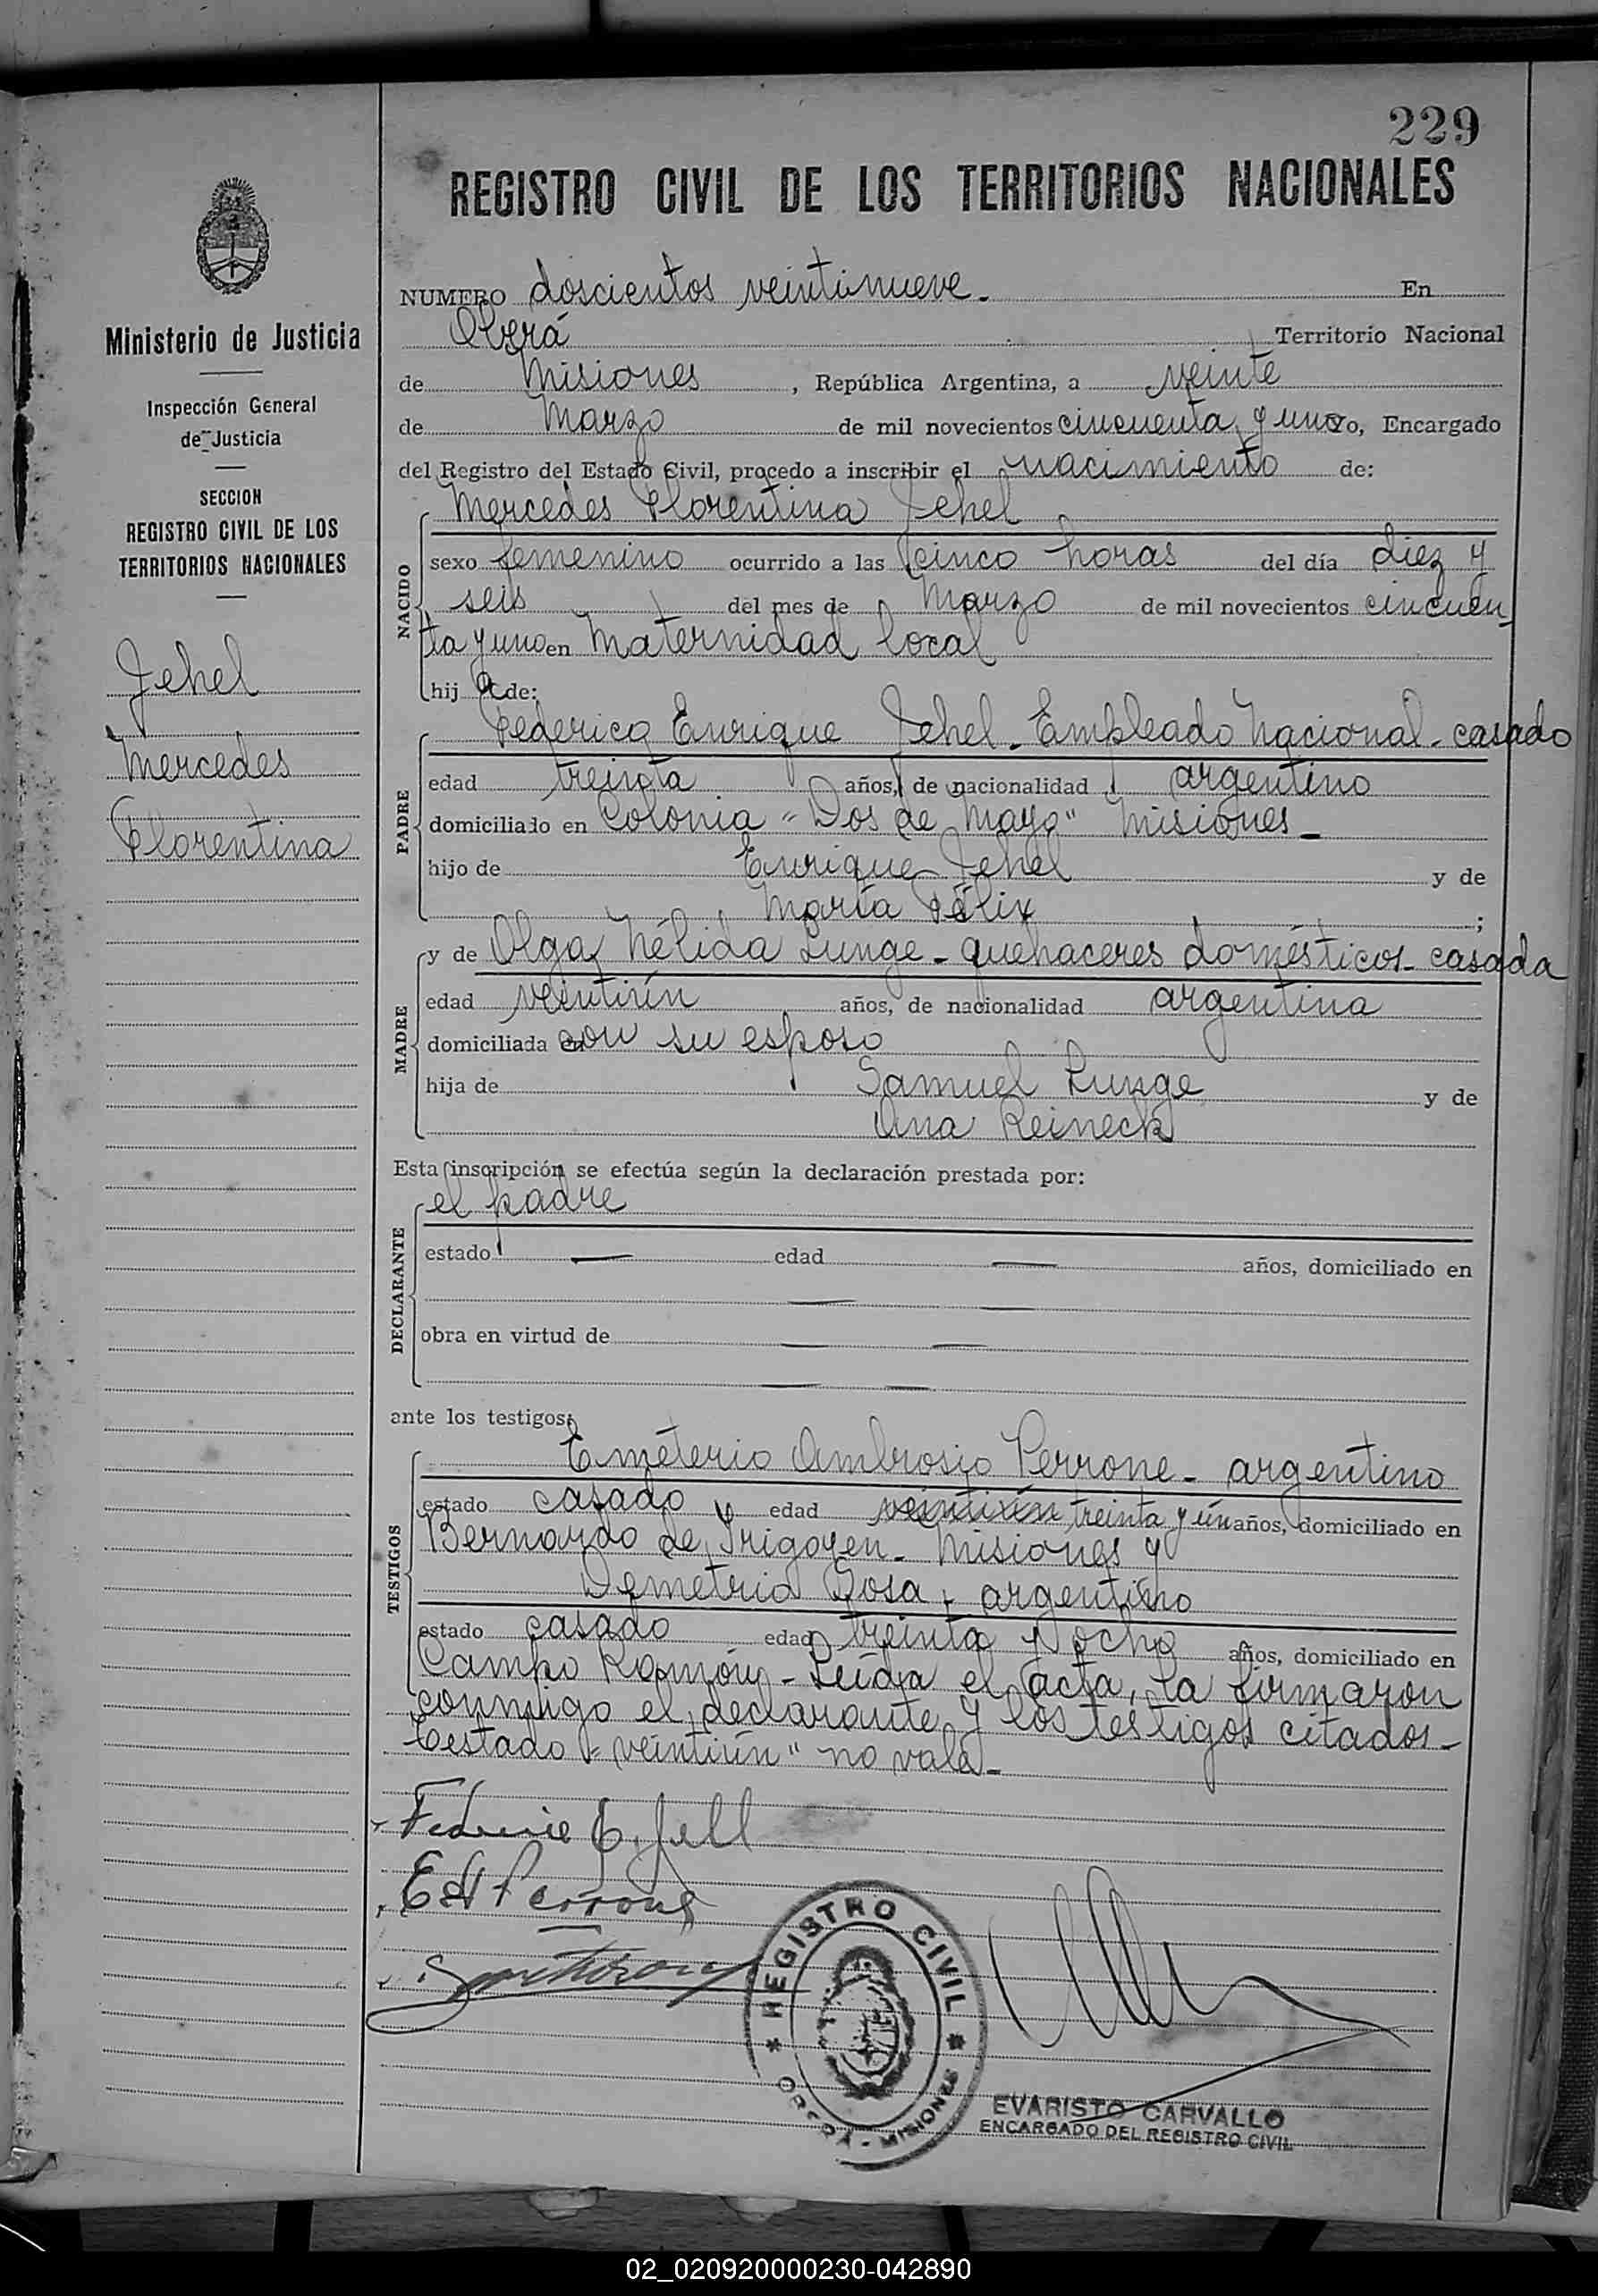 229
REGISTRO CIVIL DE LOS TERRITORIOS NACIONALES
Ministerio de Justicia
Inspección General
de Justicia
SECCION
REGISTRO CIVIL DE LOS
TERRITORIOS NACIONALES
Jehel
Mercedes
Florentina
NUMERO doscientos veintinueve. En
Oberá Territorio Nacional
de Misiones, República Argentina, a veinte
de Marzo de mil novecientos cincuenta y uno yo, Encargado
del Registro del Estado Civil, procedo a inscribir el nacimiento de:
NACIDO
Mercedes Florentina Jehel
sexo femenino ocurrido a las cinco horas del día diez y
seis del mes de Marzo de mil novecientos cincuen-
ta y uno en Maternidad local
hij a de:
PADRE
Federico Enrique Jehel. Empleado Nacional - casado
edad treinta años, de nacionalidad argentino
domiciliado en Colonia "Dos de Mayo" Misiones -
hijo de Enrique Jehel y de
María Félix ;
MADRE
y de Olga Nélida Lunge - quehaceres domésticos - casada
edad veintiún años, de nacionalidad argentina
domiciliada en con su esposo
hija de Samuel Lunge y de
Ana Reineck
Esta inscripción se efectúa según la declaración prestada por:
DECLARANTE
el padre
estado — edad — años, domiciliado en
— —
obra en virtud de — —
— —
ante los testigos:
TESTIGOS
Emeterio Ambrosio Perrone - argentino
estado casado edad veintiún treinta y ún años, domiciliado en
Bernardo de Irigoyen - Misiones y
Demetrio Sosa, argentino
estado casado edad treinta y ocho años, domiciliado en
Campo Ramón - Leída el acta, la firmaron
conmigo el declarante y los testigos citados -
Testado "veintiún" no vale -
Federico E. Jell
E A Perrone
REGISTRO CIVIL
OBERÁ - MISIONES
EVARISTO CARVALLO
ENCARGADO DEL REGISTRO CIVIL
02_020920000230-042890